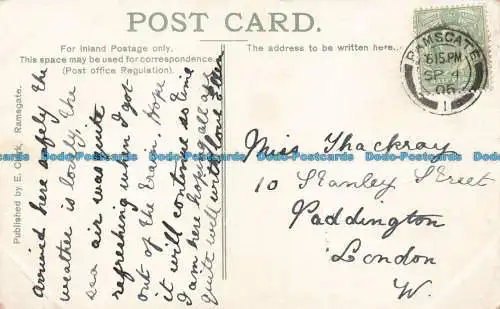 POST CARD.
For Inland Postage only.
This space may be used for correspondence.
(Post office Regulation).
The address to be written here.
RAMSGATE
6 15 PM
SP 4
06
1
Published by E. Clark, Ramsgate.
arrived here safely the
weather is lovely the
sea air was quite
refreshing when I got
out of the train. Hope
it will continue as fine
I am here hoping all are
quite well with love Ellen
Miss Thackray
10 Stanley Street
Paddington
London
W.
Dodo-Postcards Dodo-Postcards Dodo-Postcards Dodo-Postcards Dodo-Postcards Dodo-Postcards